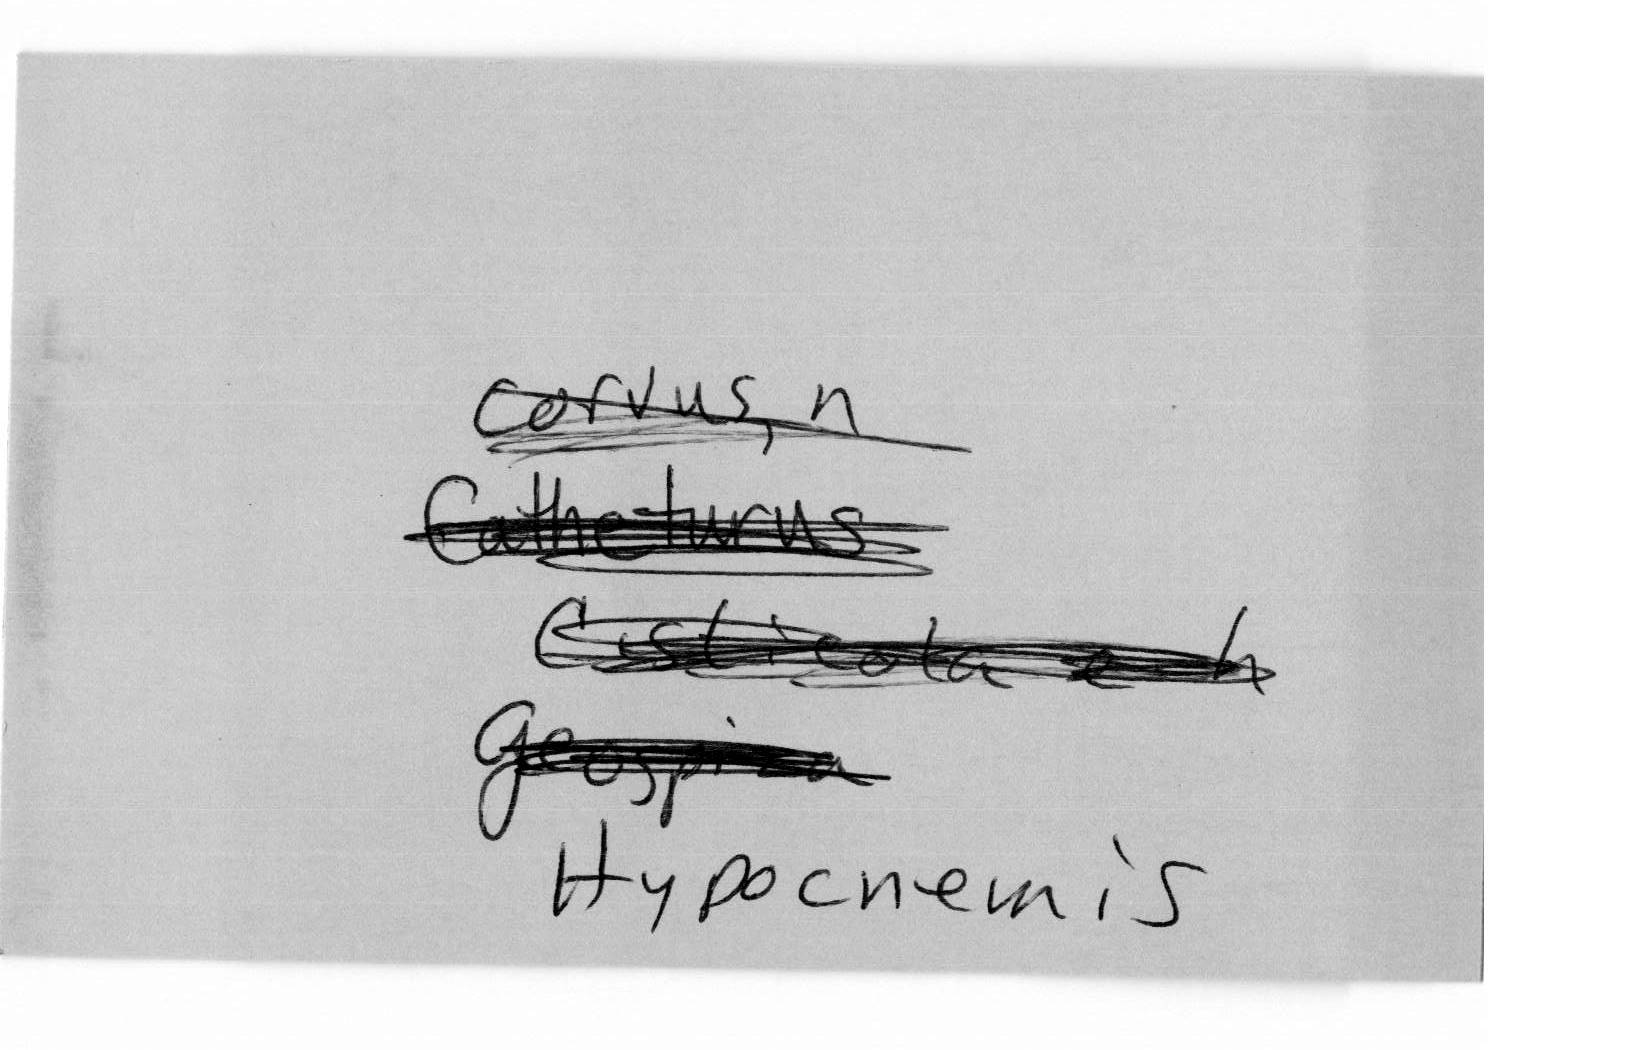 Corvus, n
Catheturus
Cisticola e-h
Geospiza
Hypocnemis